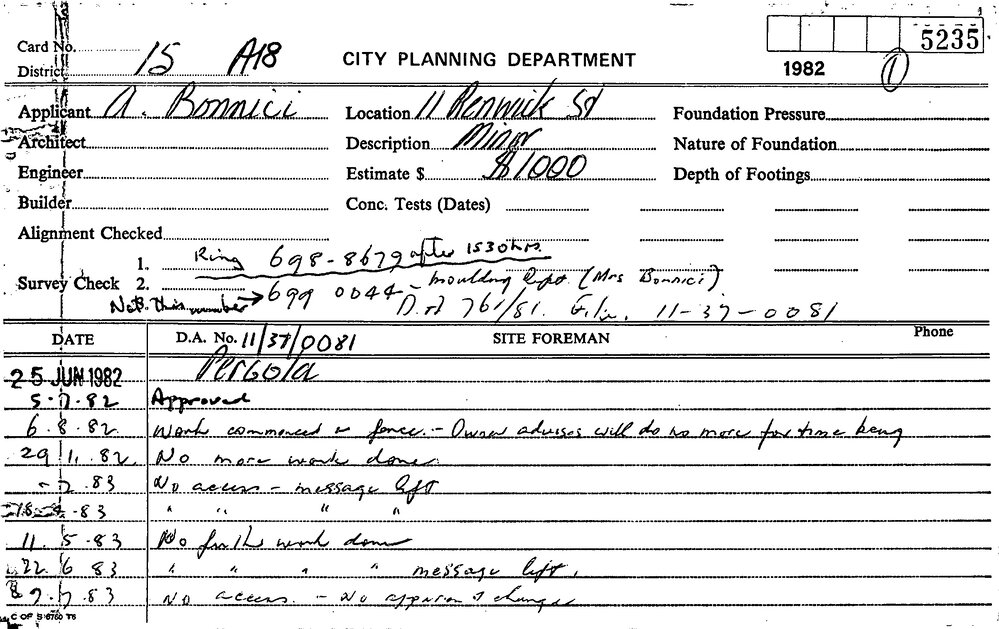 5235
Card No. 15 A18 CITY PLANNING DEPARTMENT 1982 1
District
Applicant A. Bonnici Location 11 Renwick St Foundation Pressure
Architect Description Minor Nature of Foundation
Engineer Estimate $ $1000 Depth of Footings
Builder Conc. Tests (Dates)
Alignment Checked
Survey Check 1. Ring 698-8679 after 1530 hrs.
2. 699 0044 - moulding Dept. (Mrs Bonnici)
Note this number D.A 761/81. File. 11-37-0081
DATE D.A. No. 11/37/0081 SITE FOREMAN Phone
25 JUN 1982 Pergola
5.7.82 Approved
6.8.82. Work commenced on fence. - Owner advises will do no more for time being
29 11.82. No more work done.
.83 No access - message left
.83 " " " "
11.5.83 No further work done
22.6 83 " " " " message left.
.7.83 No access. - No apparent changes
C OF S 6760 T6